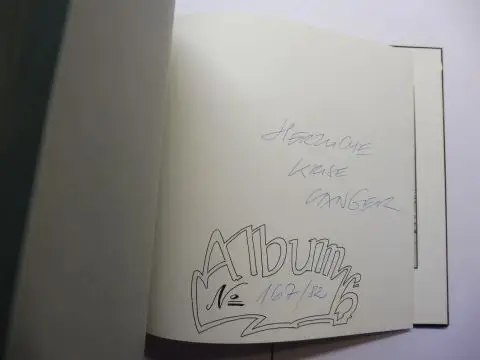 HERZLICHE
KRISE
LANGER
Album 6
No 167/82